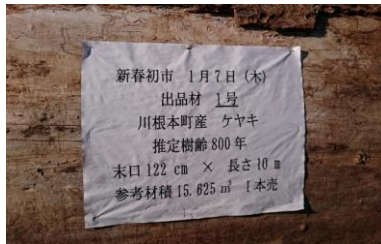 新春初市 1月7日(木)
出品材 1号
川根本町産 ケヤキ
推定樹齢800年
末口122cm × 長さ10m
参考材積15.625㎥ [本売